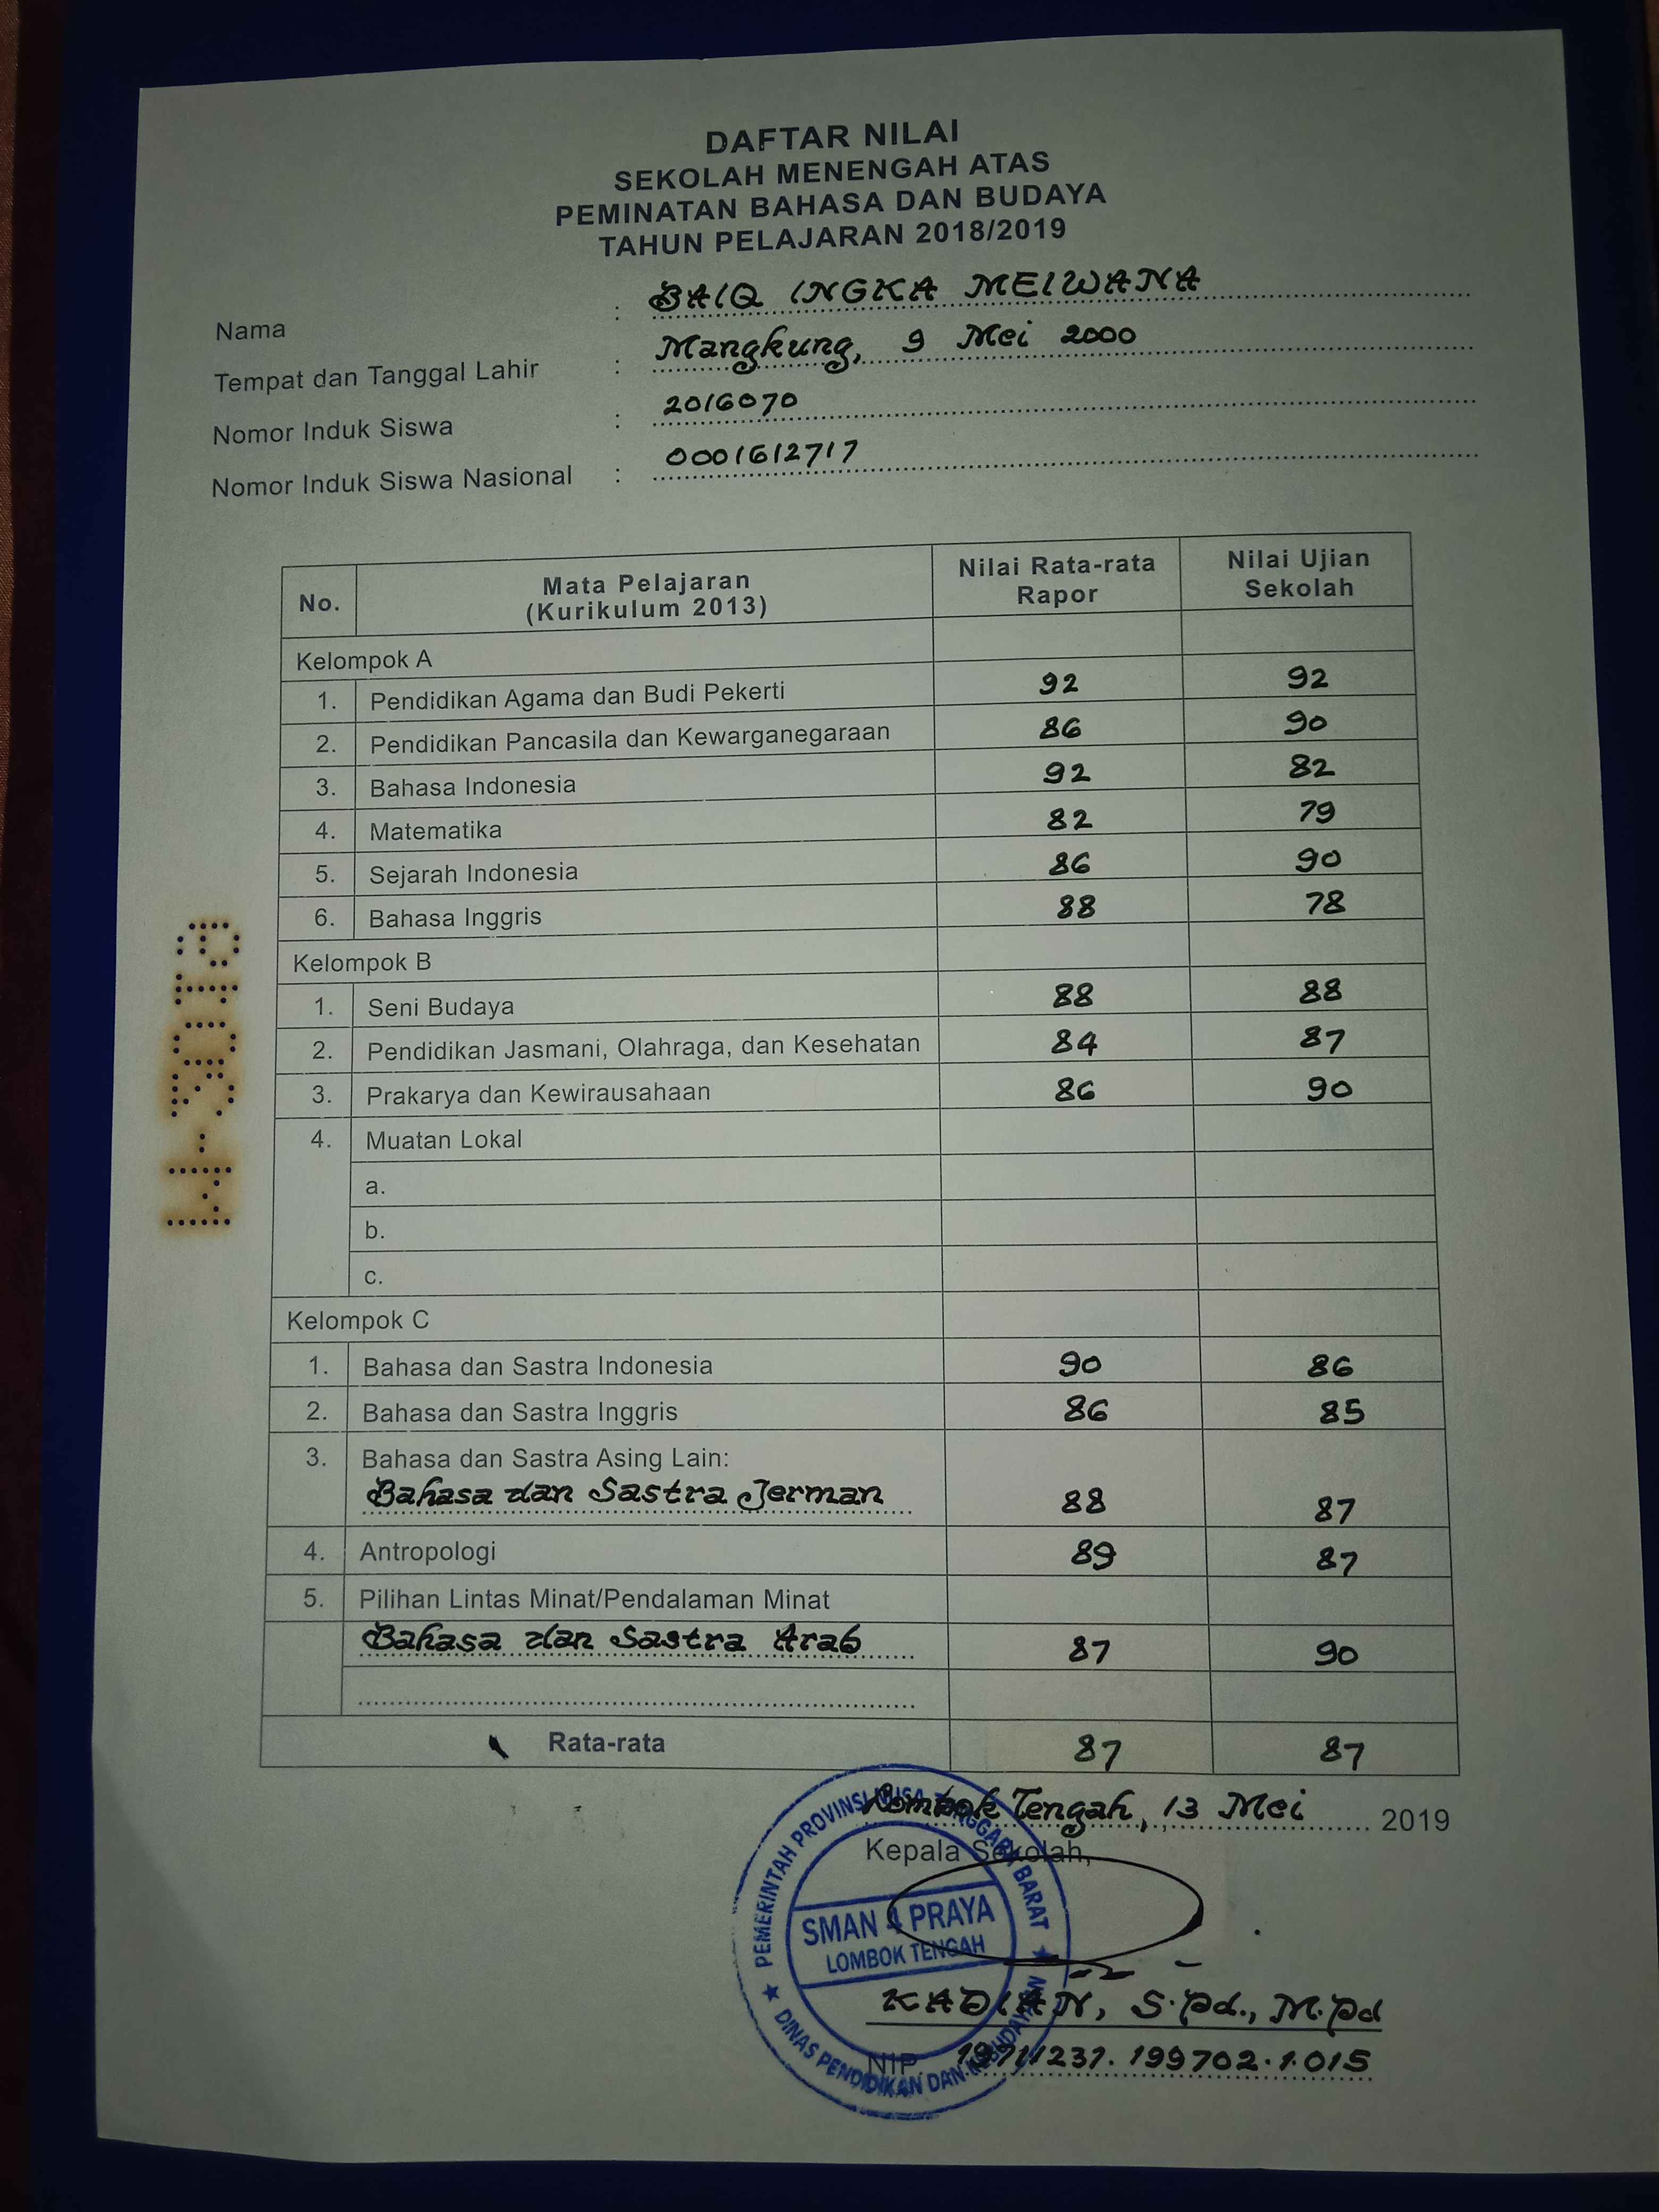 DAFTAR NILAI
SEKOLAH MENENGAH ATAS
PEMINATAN BAHASA DAN BUDAYA
TAHUN PELAJARAN 2018/2019
Nama : BAIQ INGKA MEIWANA
Tempat dan Tanggal Lahir : Mangkung, 9 Mei 2000
Nomor Induk Siswa : 2016070
Nomor Induk Siswa Nasional : 0001612717
No. Mata Pelajaran (Kurikulum 2013) Nilai Rata-rata Rapor Nilai Ujian Sekolah
Kelompok A
1. Pendidikan Agama dan Budi Pekerti 92 92
2. Pendidikan Pancasila dan Kewarganegaraan 86 90
3. Bahasa Indonesia 92 82
4. Matematika 82 79
5. Sejarah Indonesia 86 90
6. Bahasa Inggris 88 78
Kelompok B
1. Seni Budaya 88 88
2. Pendidikan Jasmani, Olahraga, dan Kesehatan 84 87
3. Prakarya dan Kewirausahaan 86 90
4. Muatan Lokal
a.
b.
c.
Kelompok C
1. Bahasa dan Sastra Indonesia 90 86
2. Bahasa dan Sastra Inggris 86 85
3. Bahasa dan Sastra Asing Lain:
Bahasa dan Sastra Jerman 88 87
4. Antropologi 89 87
5. Pilihan Lintas Minat/Pendalaman Minat
Bahasa dan Sastra Arab 87 90
Rata-rata 87 87
Lombok Tengah, 13 Mei 2019
Kepala Sekolah,
PEMERINTAH PROVINSI NUSA TENGGARA BARAT
SMAN 4 PRAYA
LOMBOK TENGAH
DINAS PENDIDIKAN DAN KEBUDAYAAN
KADIAN, S.Pd., M.Pd
NIP. 19711231.199702.1.015